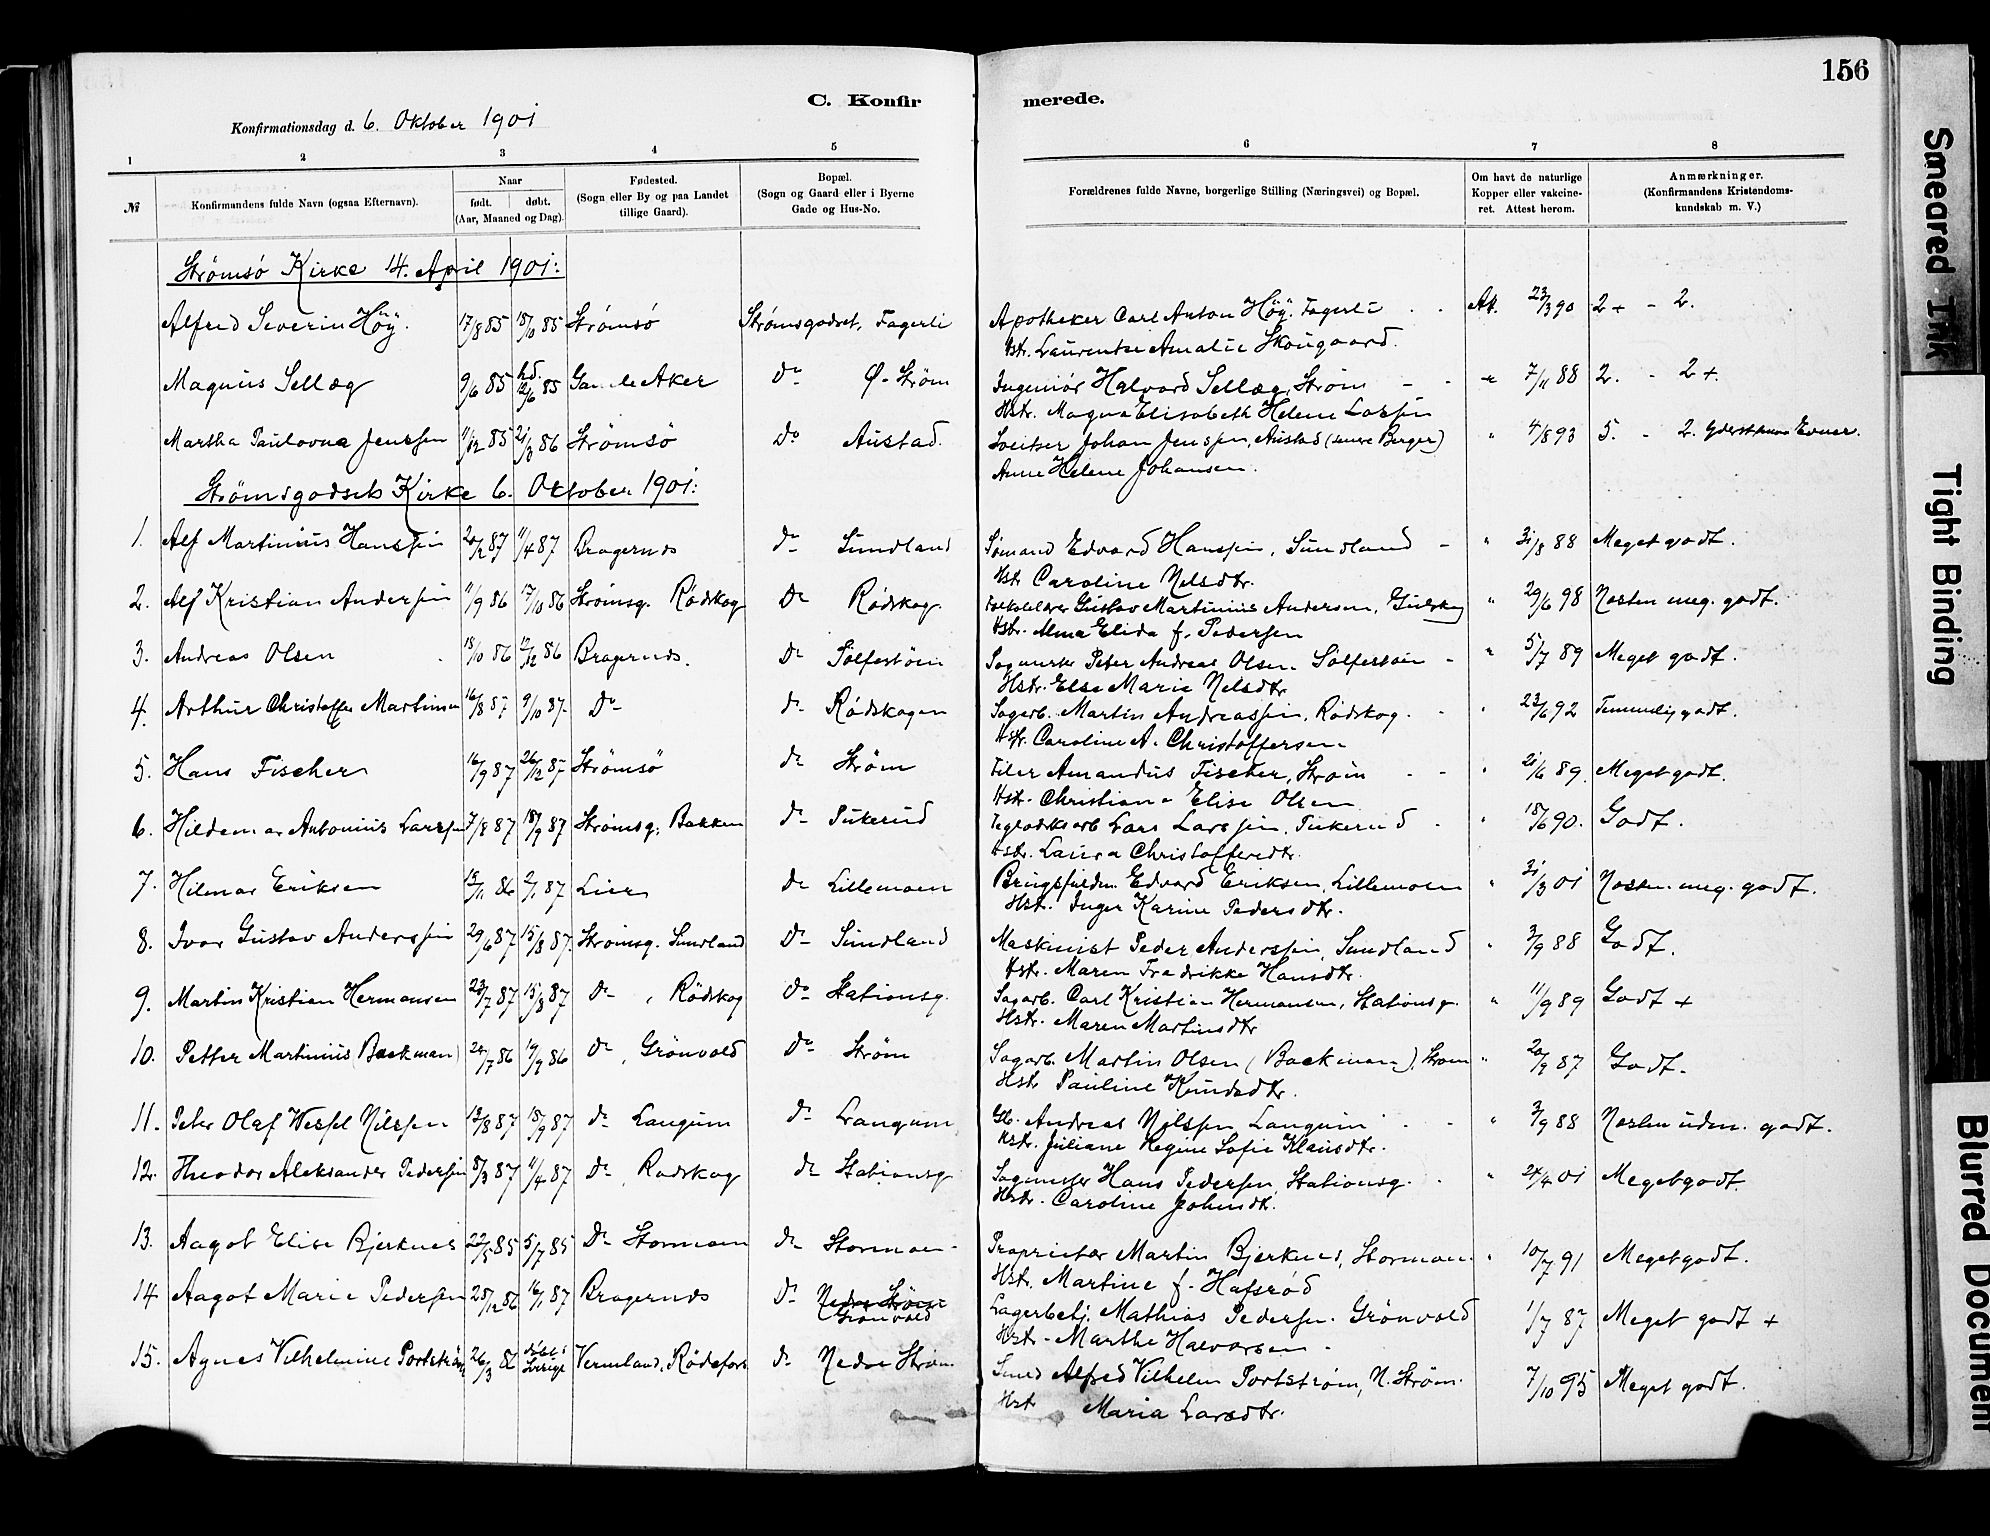 156
C. Konfirmerede.
Konfirmationsdag d. 6. Oktober 1901
1 2 3 4 5 6 7 8
№ Konfirmandens fulde Navn (ogsaa Efternavn). Naar født. døbt. (Aar, Maaned og Dag). Fødested. (Sogn eller By og paa Landet tillige Gaard). Bopæl. (Sogn og Gaard eller i Byerne Gade og Hus-No. Forældrenes fulde Navne, borgerlige Stilling (Næringsvei) og Bopæl. Om havt de naturlige Kopper eller vakcineret. Attest herom. Anmærkninger. (Konfirmandens Kristendomskundskab m. V.)
Strømsø Kirke 14. April 1901:
Alfred Severin Höÿ. 17/8 85 18/10 85 Strømsö Strømsgodset, Fagerli Apotheker Carl Anton Höÿ. Fagerli At. 23/3 90 2+ - 2.
Hstr. Laurentze Amalie Skougaard.
Magnus Sellæg 9/6 85 hd. 12/6 85 Gamle Aker Do Ø. Strøm Ingeniör Halvard Sellæg, Strøm 7/11 88 2. - 2+.
Hstr. Magna Elisabeth Helene Larsen
Martha Paulovna Jenssen 11/12 85 21/3 86 Strømsö Do Austad. Sveitser Johan Jenssen, Austad (senere Berger) " 4/8 93 5. - 2.
Anne Helene Johansen.
Strømsgodsets Kirke 6. Oktober 1901:
1. Alf Martinius Hanssen 20/2 87 11/4 87 Bragernes Do Sundland Sømand Edvard Hanssen, Sundland - " 31/8 88 Meget godt.
Hstr Caroline Nelsdtr.
2. Alf Kristian Anderssen 11/9 86 17/10 86 Strømsg. Rödskog Do Rödskog Gustav Martinius Andersen, Gulskog " 29/6 98 Næsten meg. godt.
Hstr. Alma Elida f. Pedersen
3. Andreas Olsen 18/10 86 12/12 86 Bragernes. Do Sölfestöen Sagmester Peter Andreas Olsen. Sölfestöen - " 5/7 89 Meget godt.
Hstr. Else Marie Nelsdtr
4. Arthur Christoffer Martinsen 16/8 87 9/10 87 Do Do Rödskogen Sagarb. Martin Andreassen, Rödskog. " 23/6 92 Temmelig godt.
Hstr. Caroline A. Christoffersen
5. Hans Fischer 16/9 87 26/12 87 Strømsö Do Strøm Filer Amandus Fischer, Strøm " 21/6 89. Meget godt.
Hstr. Christiane Elise Olsen
6. Hildemar Antonius Larssen 7/8 87 18/9 87 Strømsg. Bakken Do Pukerud Teglværksarb Lars Larssen, Pukerud " 18/6 90. Godt.
Hstr. Laura Christoffersdtr.
7. Hilmar Eriksen 13/11 86 2/1 87 Lier Do Lillemoen Edvard Eriksen, Lillemoen " 31/3 01 Næsten meg. godt.
Hst. Inger Karine Pedersdtr.
8. Ivar Gustav Anderssen 29/6 87 15/8 87 Strømsg. Sundland Do Sundland Maskinist Peder Anderssen, Sundland " 3/9 88 Godt.
Hstr. Maren Fredrikke Hansdtr.
9. Martin Kristian Hermansen 23/7 87 15/8 87 Do, Rödskog Do Stationsg. Sagarb. Carl Kristian Hermansen, Stationsg. " 11/9 89 Godt +
Hstr. Maren Martinsdtr
10. Petter Martinius (Backman) 24/7 86 19/9 86 Do, Grönvold Do Strøm Sagarb. Martin Olsen (Backman), Strøm " 20/9 87 Godt.
Hstr Pauline Knudsdtr.
11. Peter Olaf Wessel Nilssen 13/8 87 18/9 87 Do Langum Do Langum Gb. Andreas Nilssen Langum " 3/9 88 Næsten udm. godt.
Hstr. Juliane Regine Sofie Klausdtr.
12. Theodor Aleksander Pedersen 8/3 87 11/4 87 Do, Rødskog Do Stationsg Sagmester Hans Pedersen, Stationsg. " 24/4 01 Meget godt.
Hstr. Caroline Johnsdt.
13. Aagot Elise Bjerknes 22/5 85 5/7 85 Do Stormoen Do Stormoen Proprietær Martin Bjerknes, Stormoen " 10/7 91 Meget godt.
Hstr. Martine f. Hafsrød
14 Aagot Marie Pedersen 25/12 86 16/1 87 Bragernes Do Nedre Strøm Grönvold Lagerbetj. Mathias Pedersen. Grönvold 1/7 87 Meget godt +
Hstr. Marthe Halvorsen
15. Agnes Vilhelmine Portström 26/3 86 døbt i Sverige Vermland, Rödefors Do Nedre Strøm Smed Alfred Vilhelm Portström, N. Strøm. 7/10 95 Meget godt.
Hstr Maria Larsdtr.
Smeared Ink
Tight Binding
Blurred Document